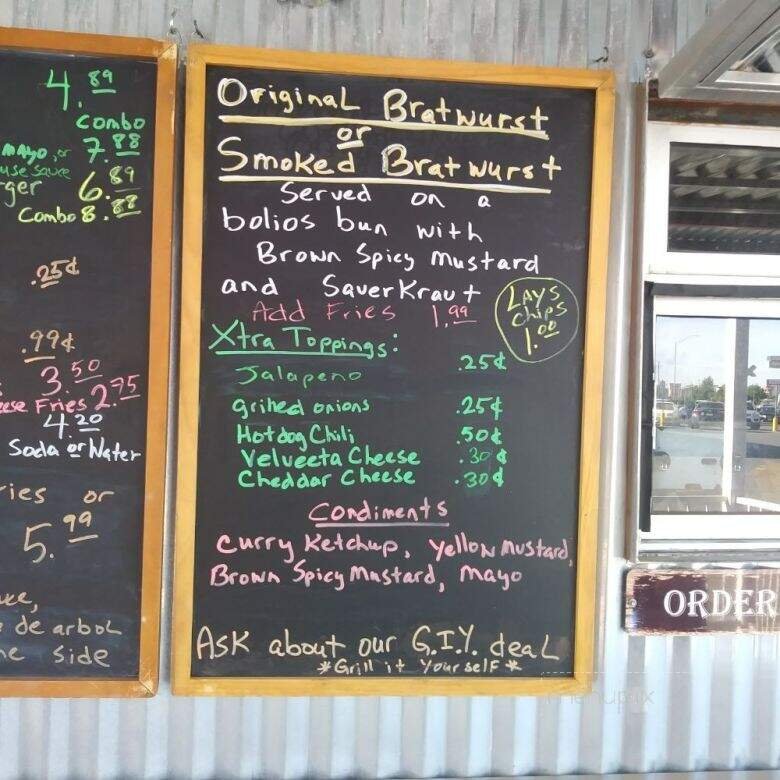 4.89
Combo
mayo, or 7.88
use sauce
rger 6.89
Combo 8.88
.25¢
.99¢
3.50
ese Fries 2.75
4.20
Soda or Water
ries or
5.99
uce,
de arbol
he side
Original Bratwurst
or
Smoked Bratwurst
Served on a
bolios bun with
Brown Spicy Mustard
and SauerKraut
Add Fries 1.99
LAYS
chips
1.00
Xtra Toppings:
Jalapeno .25¢
grilled onions .25¢
Hotdog Chili .50¢
Velveeta Cheese .30¢
Cheddar Cheese .30¢
Condiments
Curry Ketchup, Yellow Mustard,
Brown Spicy Mustard, Mayo
Ask about our G.I.Y. deal
*Grill it Yourself*
ORDER
menupix